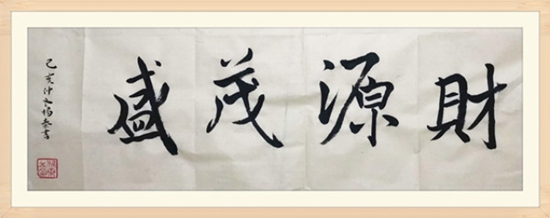 財源茂盛
己亥仲冬
書